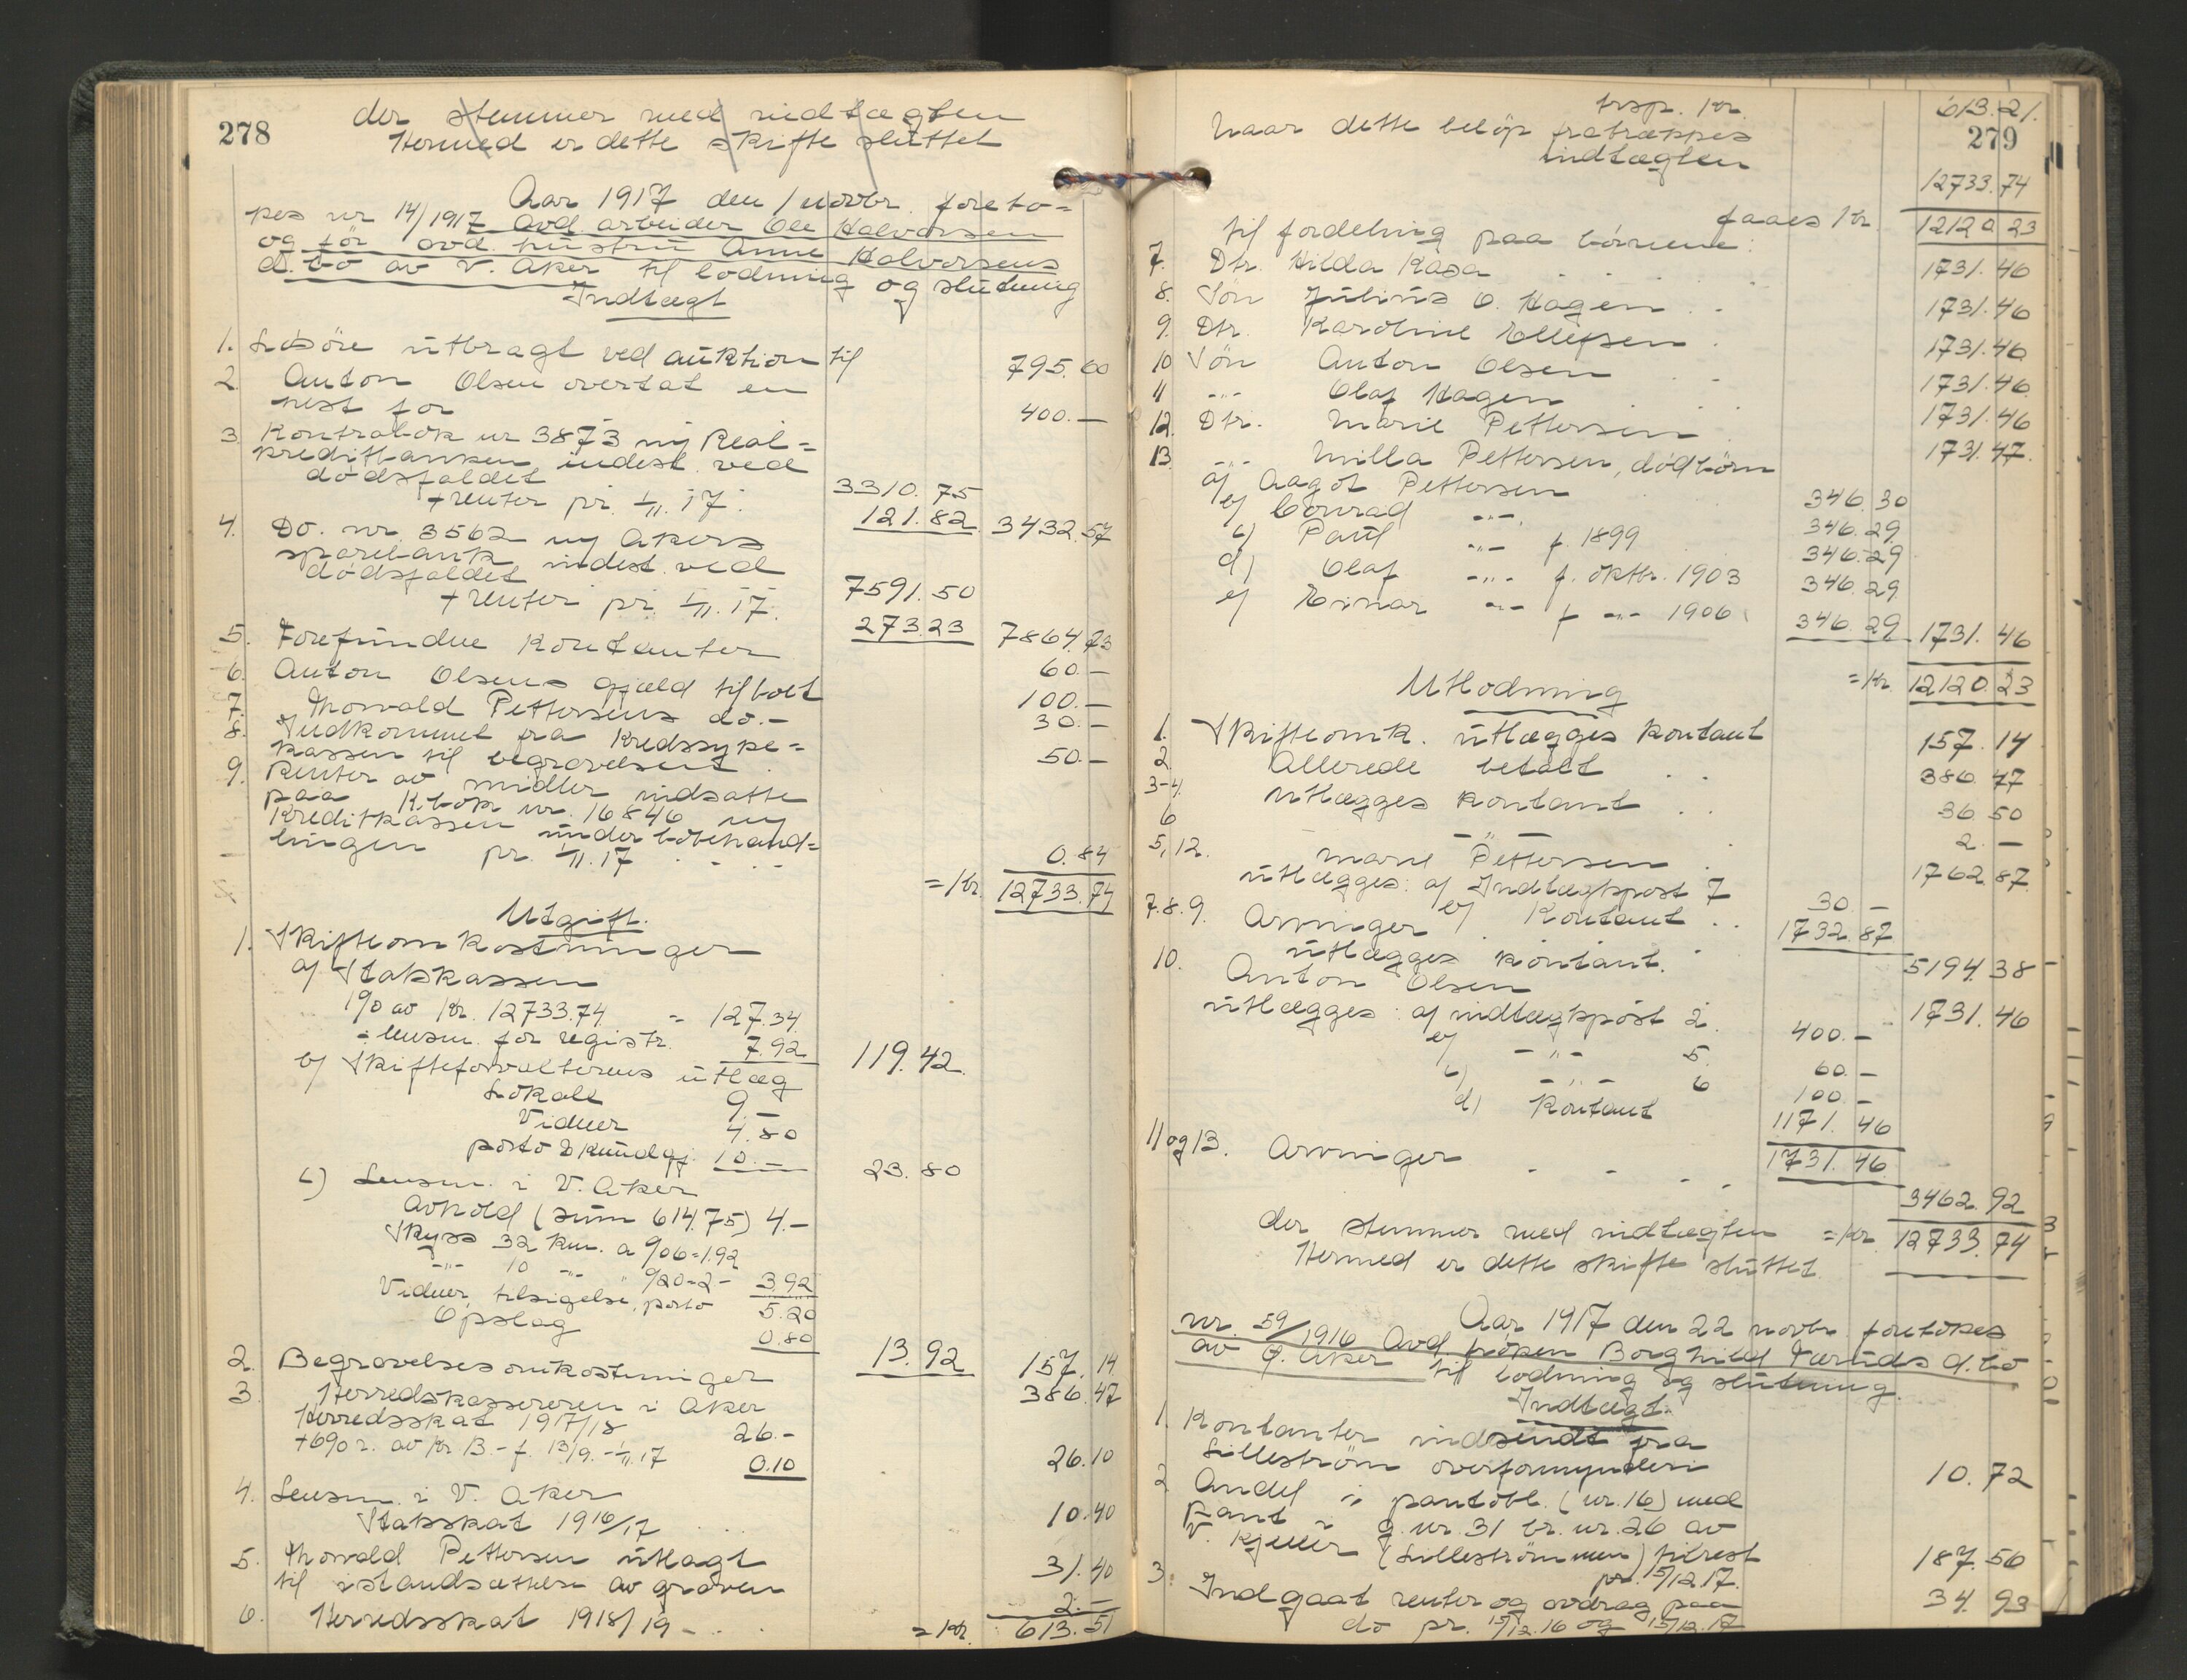 278
der stemmer med indtægten
Hermed er dette skifte sluttet
Aar 1917 den 1 novbr. foreto=
pes nr 14/1917 avd. arbeider Ole Halvorsen
og før avd. hustru Anne Halvorsens
d.bo av V. Aker til lodning og slutning
Indtægt
1. Løsøre utbragt ved auktion til 795.60
2. Anton Olsen overtat en
hest for 400.—
3. Kontrabok nr 3873 m/ Real=
kreditbanken indest. ved
dødsfaldet 3310.75
+ renter pr. 1/11.17. 121.82 3432.57
4. Do. nr. 3562 m/ Akers
sparebank indest. ved
dødsfaldet 7591.50
+ renter pr. 1/11.17. 273.23 7864.73
5. Forefundne kontanter 60.—
6. Anton Olsens gjæld til boet 100.—
7. Thorvald Pettersens do.— 30.—
8. Indkommet fra kredssyke=
kassen til begravelsen 50.—
9. Renter av midler indsatte
paa K.bok nr. 16846 m/
Kreditkassen under bobehand=
lingen pr. 1/11.17 0.84
= Kr. 12733.74
Utgift.
1. Skifteomkostninger
a) Statskassen
1% av Kr. 12733.74 = 127.34
÷ lensm. for registr. 7.92 119.42
b) Skifteforvalterens utlæg
Lokale 9.—
Vidner 4.80
porto & kundgj. 10.— 23.80
c) Lensm. i V. Aker
Avhold (sum 614.75) 4.—
Skyss 32 km. a 0/06=1.92
-"- 10 -"- " 0/20=2.- 3.92
Vidner, tilsigelse, porto 5.20
Opslag 0.80 13.92 157.14
2. Begravelsesomkostninger 386.47
3. Herredskassereren i Aker
Herredsskat 1917/18 26.-
+6% r. av Kr 13.- f. 13/9.-1/11.17 0.10 26.10
4. Lensm. i V. Aker
Statsskat 1916/17 10.40
5. Thorvald Pettersen utlagt
til istandsættelse av graven 31.40
6. Herredsskat 1918/19 2.—
= Kr. 613.51
trsp. Kr. 613.21.
279
Naar dette beløp fratrækkes
indtægten 12733.74
faaes Kr. 12120.23
til fordeling paa børnene:
7. Dtr. Hilda Kasa 1731.46
8. Søn Julius O. Hagen 1731.46
9. Dtr. Karoline Ellefsen 1731.46
10 Søn Anton Olsen 1731.46
11 -"- Olaf Hagen 1731.46
12. Dtr. Marie Pettersen 1731.47
13 -"- Milla Pettersen, død børn
a) Aagot Pettersen 346.30
b) Conrad -"- 346.29
c) Paul -"- f. 1899 346.29
d) Olaf -"- f. oktbr. 1903 346.29
e) Einar -"- f -"- 1906 346.29 1731.46
= Kr. 12120.23
Utlodning
1. Skifteomk. utlægges kontant 157.14
2 Allerede betalt 386.47
3-4. utlægges kontant 36.50
6 -"- 2.—
5, 12. Marie Pettersen 1762.87
utlægges: a) Indtægtspost 7 30.—
b) Kontant 1732.87
7.8.9. Arvinger
utlægges kontant. 5194.38
10. Anton Olsen 1731.46
utlægges: a) indtægtspost 2. 400.—
b) -"- 5. 60.—
c) -"- 6 100.—
d) Kontant 1171.46
1731.46
11 og 13. Arvinger 3462.92
der stemmer med indtægten = Kr 12733.74
Hermed er dette skifte sluttet.
Aar 1917 den 22 novbr. foretokes
nr. 59/1916 Avd. frøken Borghild d.bo
av Ø. Aker til lodning og slutning.
Indtægt.
1. Kontanter indsendt fra
Lillestrøm overformynderi 10.72
2 Andel i pantobl. (nr. 16) med
pant i g.nr. 31 br.nr. 26 av
N. Kjeller (Lillestrømmen) tilrest
pr. 15/12.17. 187.50
3. Indgaat renter og avdrag paa
do pr. 15/12.16 og 15/12.17 34.93